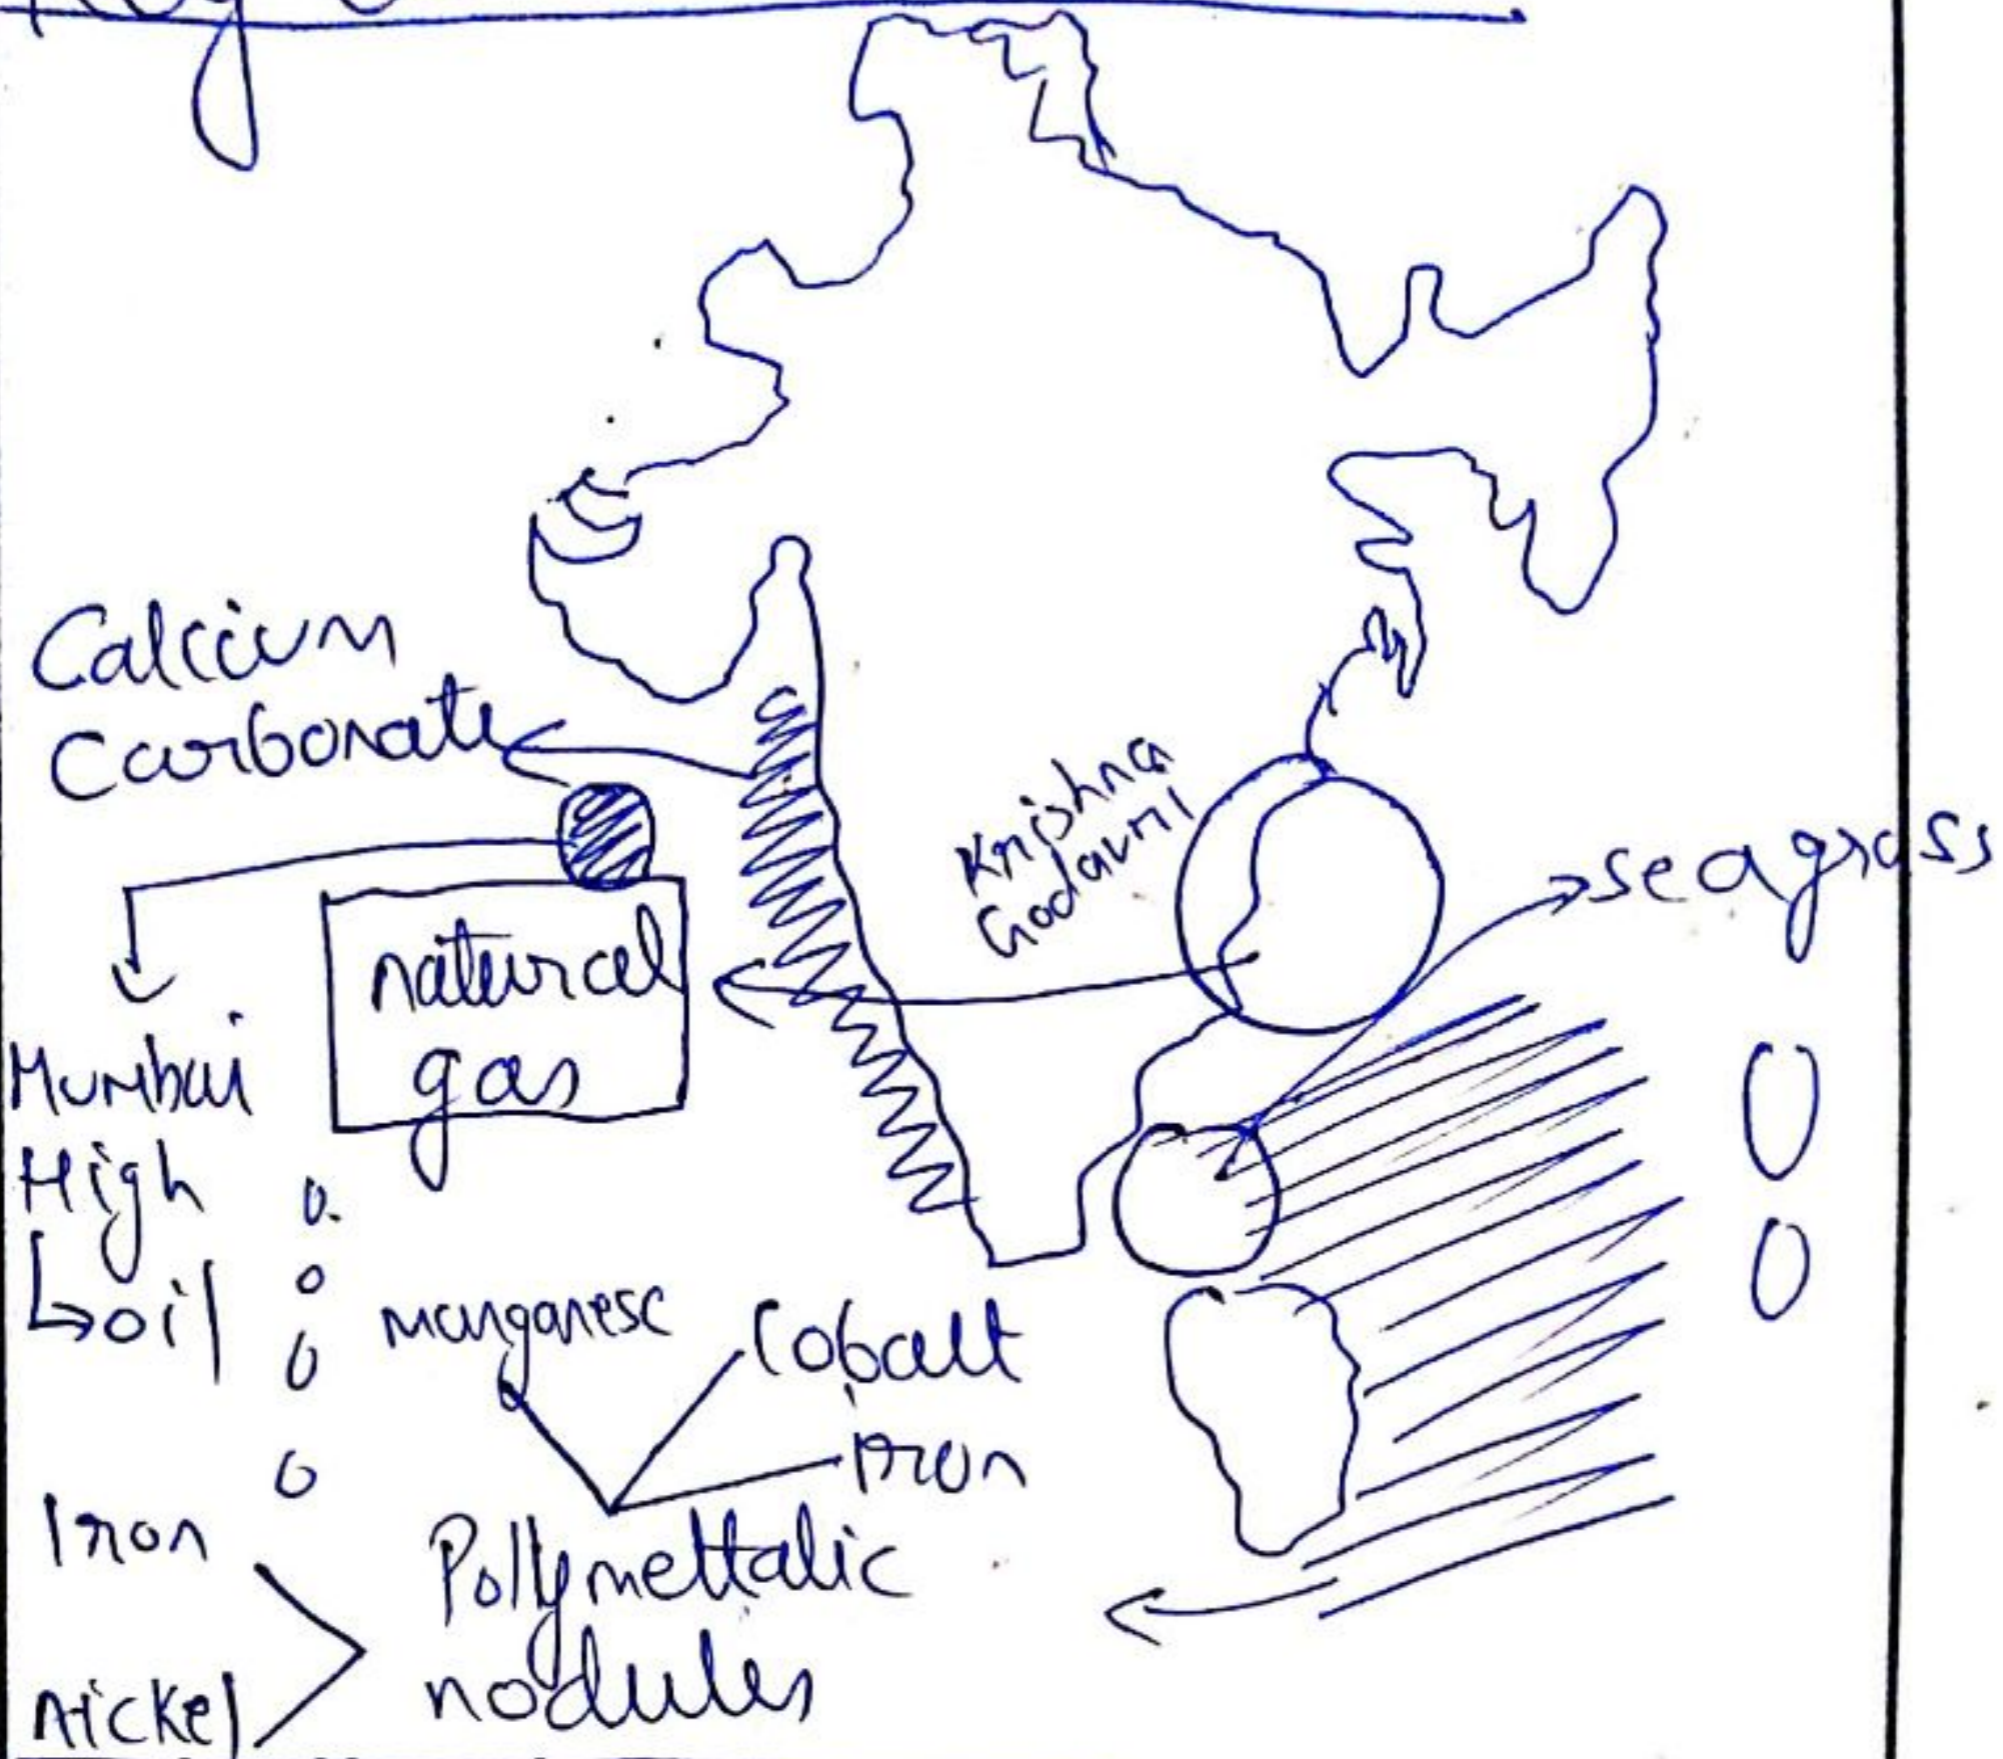 Calcium
Carbonate
Krishna
Godavri
seagrass
natural
gas
Mumbai
High
↳oil
manganese
Cobalt
Iron
Iron
Pollymettalic
nodules
nickel